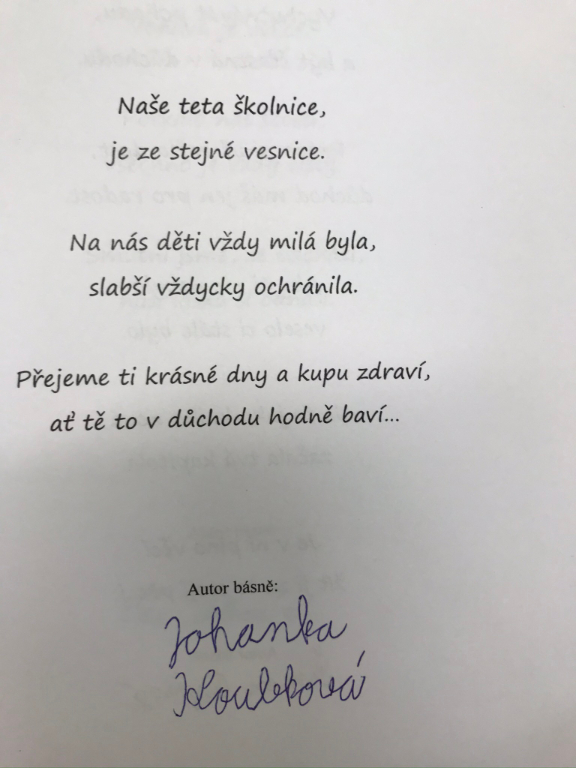 Naše teta školnice,
je ze stejné vesnice.
Na nás děti vždy milá byla,
slabší vždycky ochránila.
Přejeme ti krásné dny a kupu zdraví,
ať tě to v důchodu hodně baví...
Autor básně:
Johanka